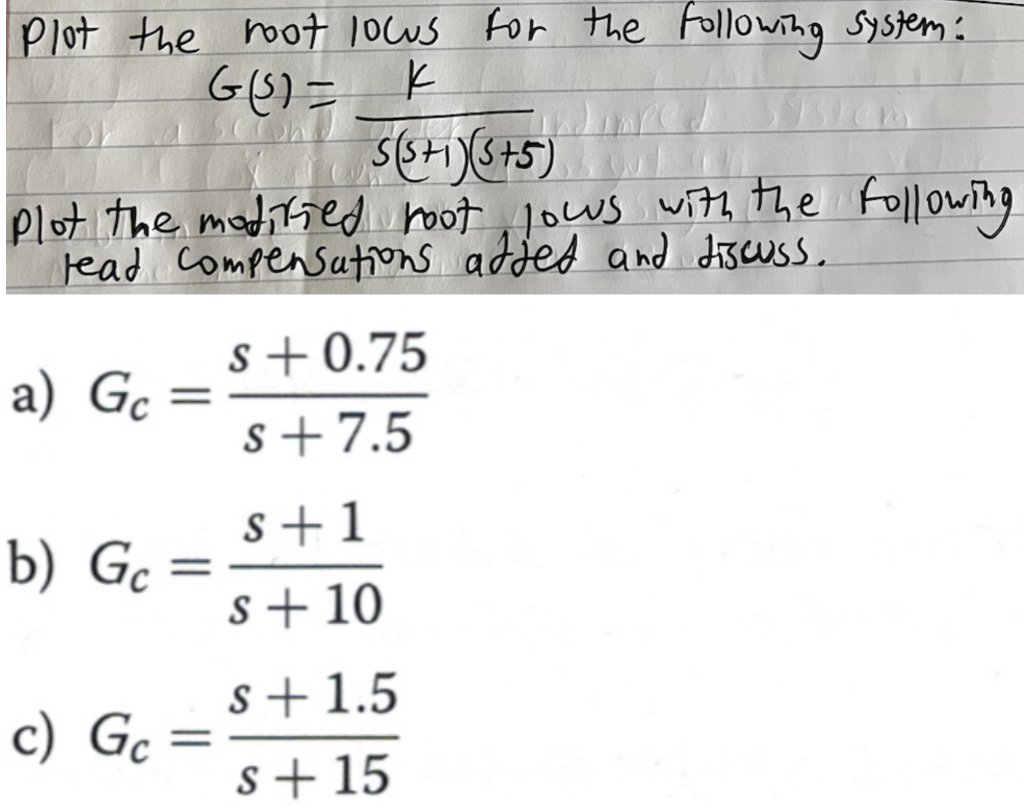 Plot the root locus for the following system:
G(s) = K / s(s+1)(s+5)
Plot the modified root locus with the following
lead compensations added and discuss.
a) Gc = s + 0.75 / s + 7.5
b) Gc = s + 1 / s + 10
c) Gc = s + 1.5 / s + 15